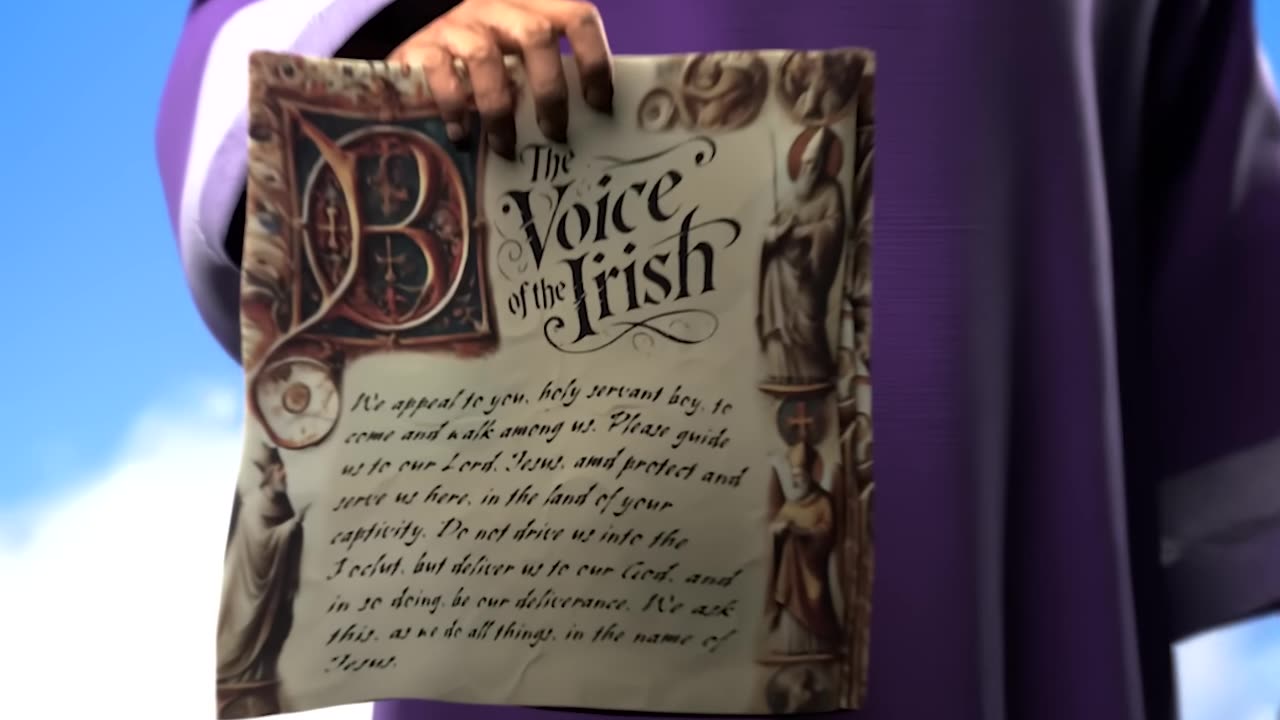 B
The
Voice
of the
Irish
We appeal to you, holy servant boy, to
come and walk among us. Please guide
us to our Lord, Jesus, amd protect and
serve us here, in the land of your
captivity. Do not drive us into the
Foclut, but deliver us to our God, and
in so doing, be our deliverance. We ask
this, as we do all things, in the name of
Jesus.